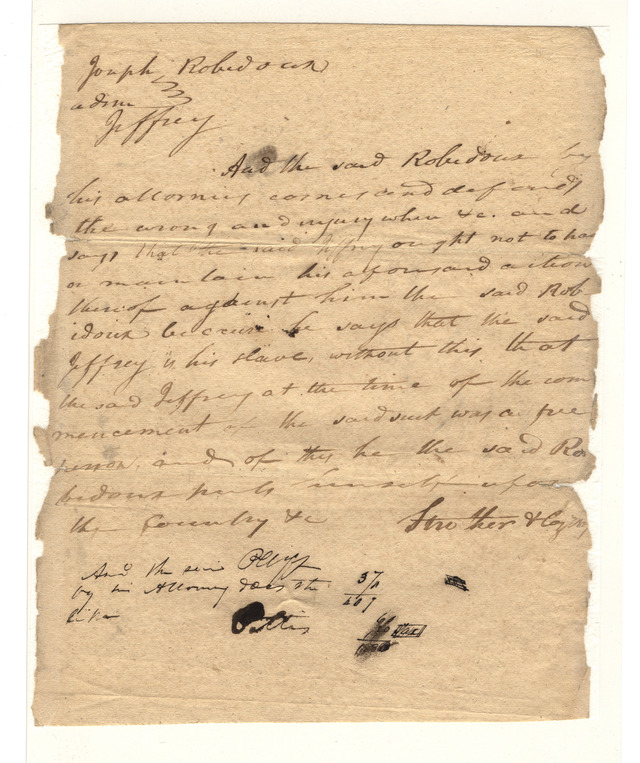 Joseph Robidoux
adsm
Jeffrey
And the said Robidoux by
his attornies comes and defends
the wrong and injury when &c. and
says that the said Jeffrey ought not to ha
or maintain his aforesaid action
thereof against him the said Rob
idoux because he says that the said
Jeffrey is his slave, without this that
the said Jeffrey at the time of the com
mencement of the said suit was a free
person, and of this he the said Ro
bidoux puts himself upon
the Country &c Strother &
And the said Plff
by his Attorney does the
like
37